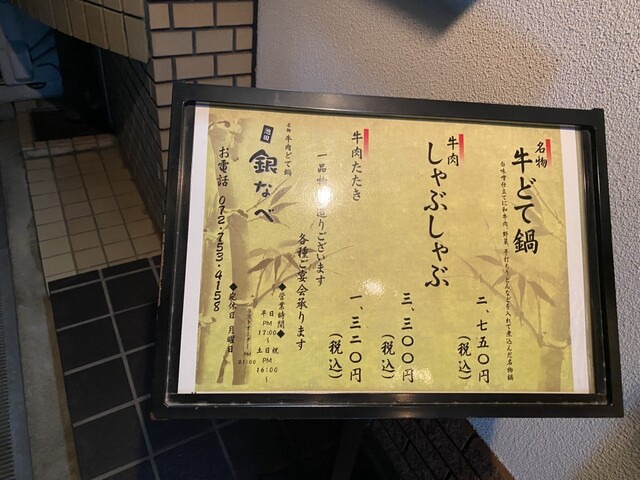 名物
牛どて鍋
白味噌仕立てに和牛肉、野菜、手打ちうどんなどを入れて煮込んだ名物鍋
二、七五〇円
(税込)
牛肉
しゃぶしゃぶ
三、三〇〇円
(税込)
牛肉たたき
一、三二〇円
(税込)
一品物
造りございます
各種ご宴会承ります
名物 牛肉どて鍋
池田
銀なべ
お電話 072・753・4158
◆営業時間◆
平日
PM
17:00〜
土日祝
PM
16:00〜
ラストオーダー PM 21:00
◆定休日 月曜日